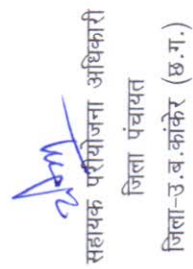 सहायक परियोजना अधिकारी
जिला पंचायत
जिला-उ.ब.कांकेर (छ.ग.)